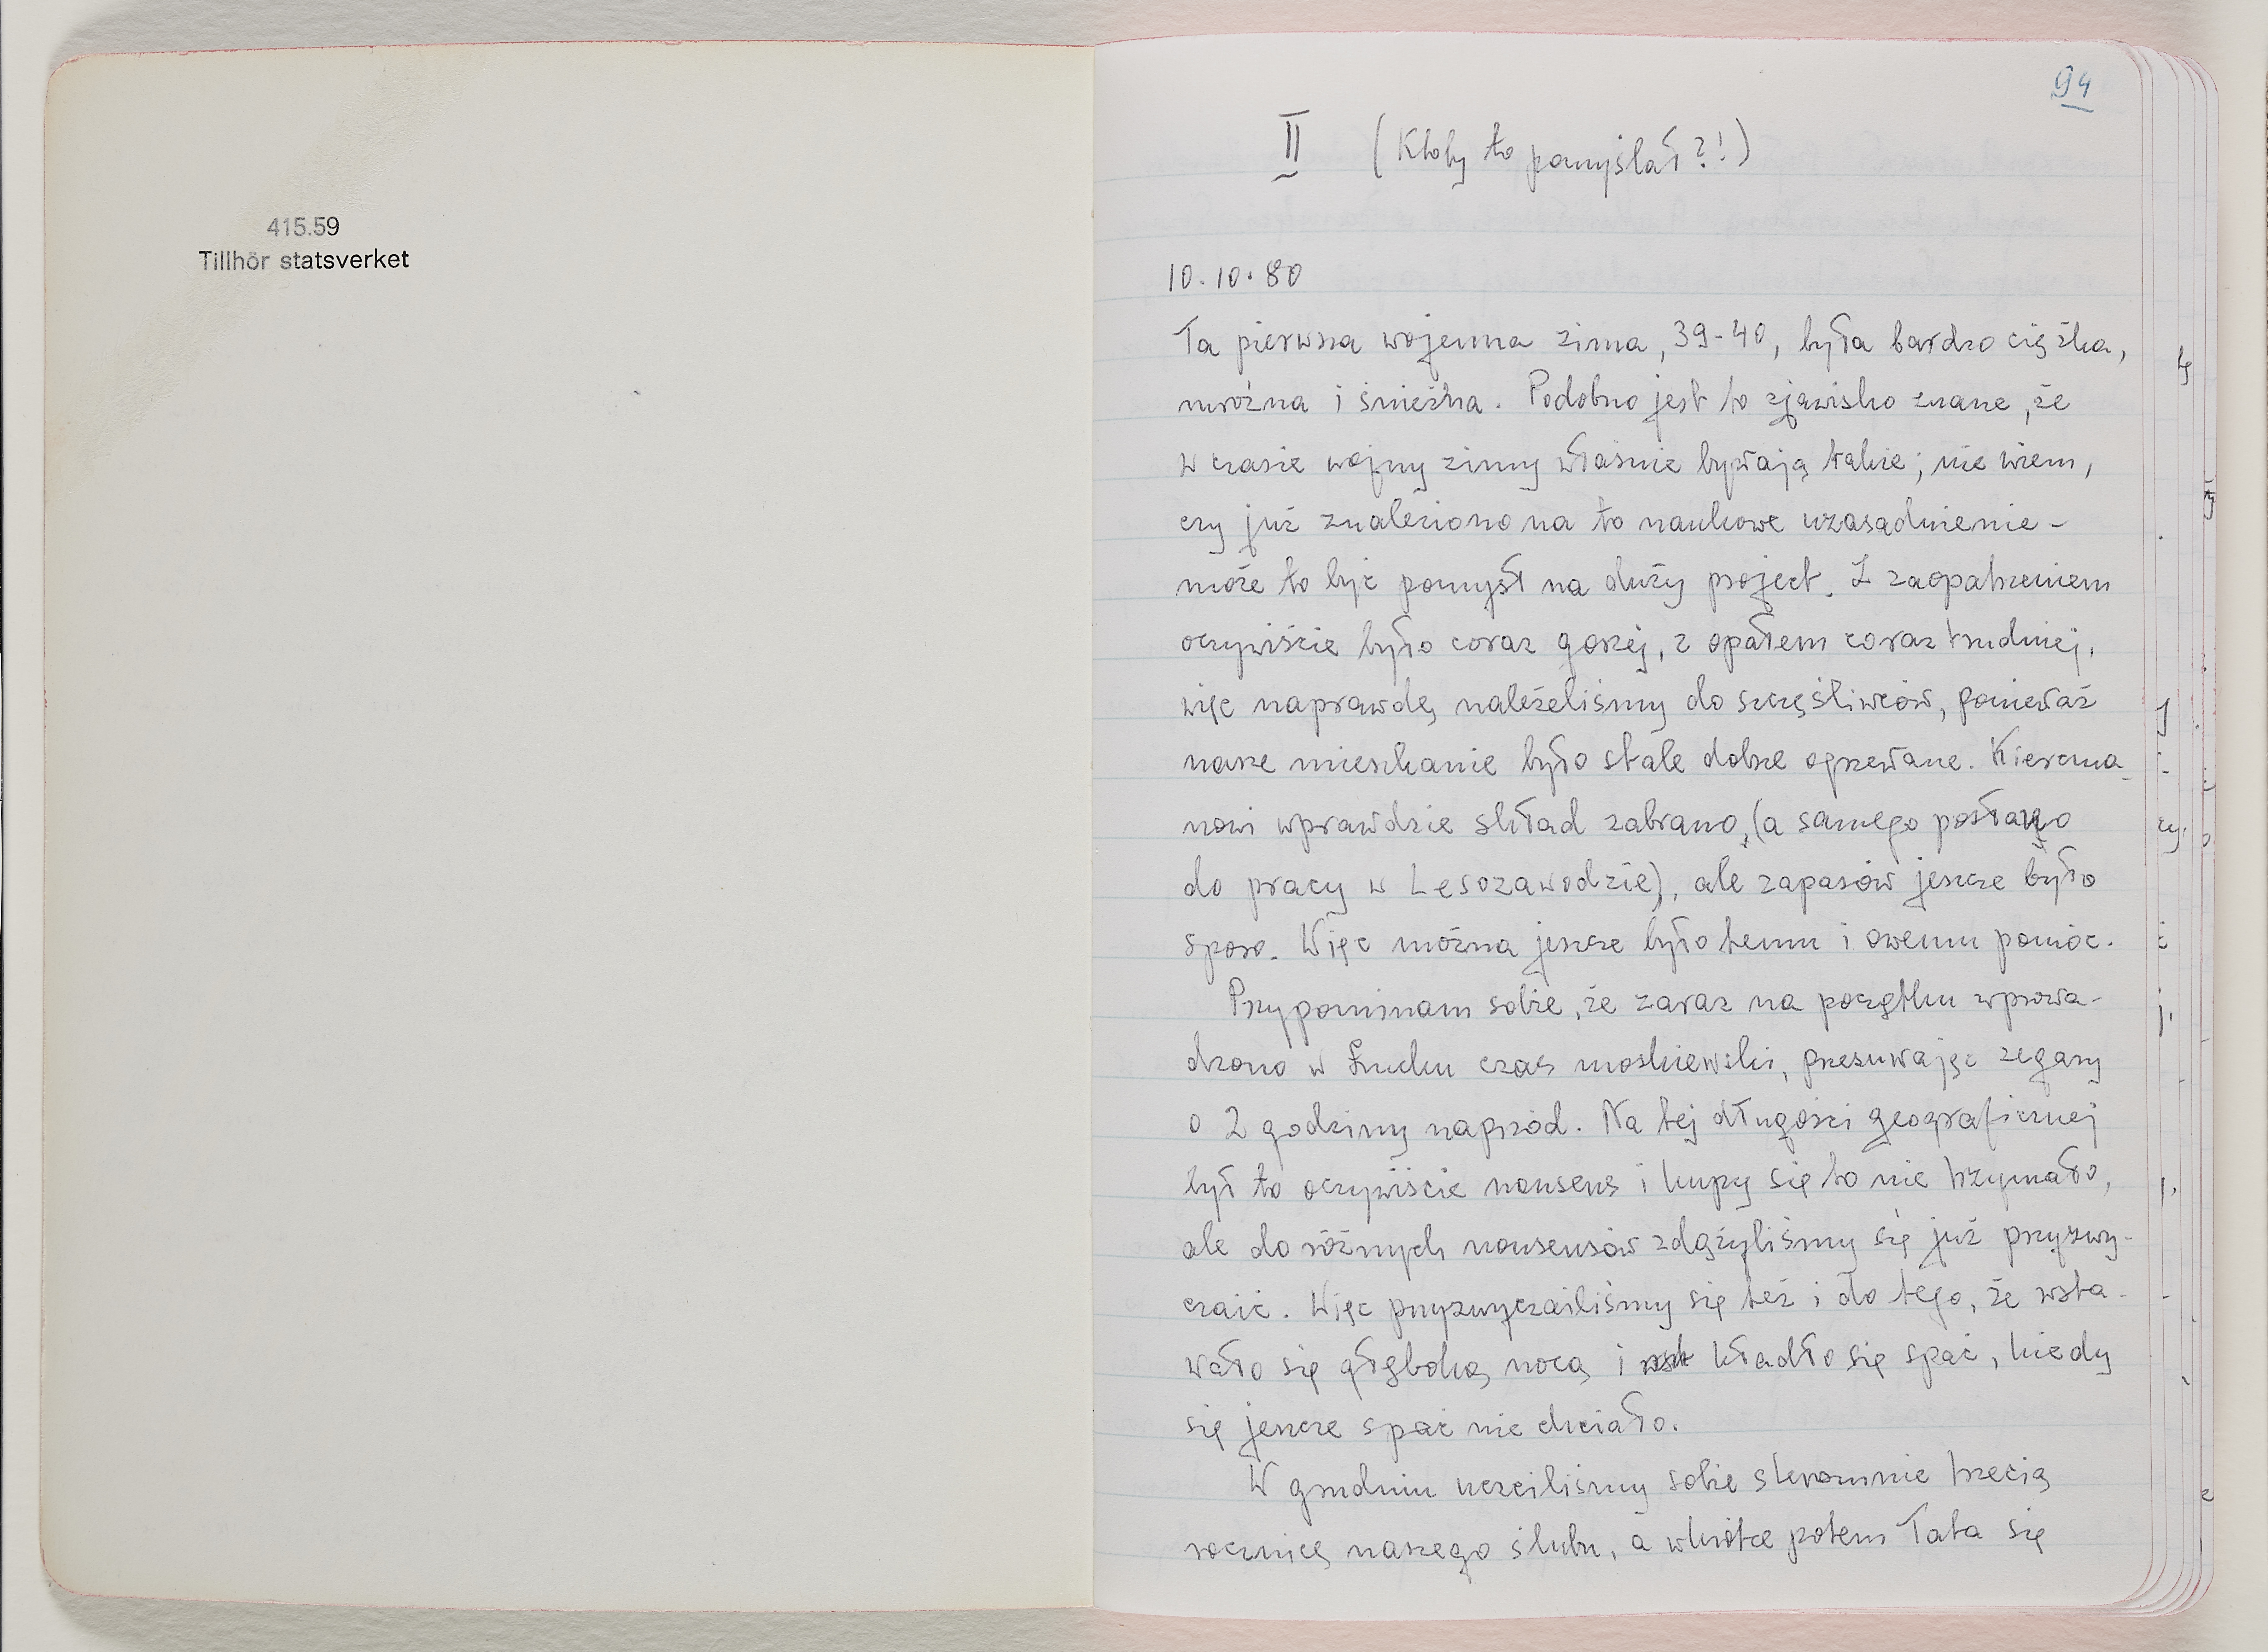 415.59
Tillhör statsverket
94
II (Ktoby to pomyślał?!)
10.10.80
Ta pierwsza wojenna zima, 39-40, była bardzo ciężka,
mroźna i śnieżna. Podobno jest to zjawisko znane, że
w czasie wojny zimy właśnie bywają takie; nie wiem,
czy już znaleziono na to naukowe uzasadnienie -
może to być pomysł na duży project. Z zaopatrzeniem
oczywiście było coraz gorzej, z opałem coraz trudniej,
więc naprawdę należeliśmy do szczęśliwców, ponieważ
nasze mieszkanie było stale dobrze ogrzewane. Kiercma-
nowi wprawdzie skład zabrano, (a samego posłano
do pracy w Lesozawodzie), ale zapasów jeszcze było
sporo. Więc można jeszcze było temu i owemu pomóc.
Przypominam sobie, że zaraz na początku wprowa-
dzono w Łucku czas moskiewski, przesuwając zegary
o 2 godziny naprzód. Na tej długości geograficznej
był to oczywiście nonsens i kupy się to nie trzymało,
ale do różnych nonsensów zdążyliśmy się już przyzwy-
czaić. Więc przyzwyczailiśmy się też i do tego, że wsta-
wało się głęboką nocą i kładło się spać, kiedy
się jeszcze spać nie chciało.
W grudniu uczciliśmy sobie skromnie trzecią
rocznicę naszego ślubu, a wkrótce potem Tata się